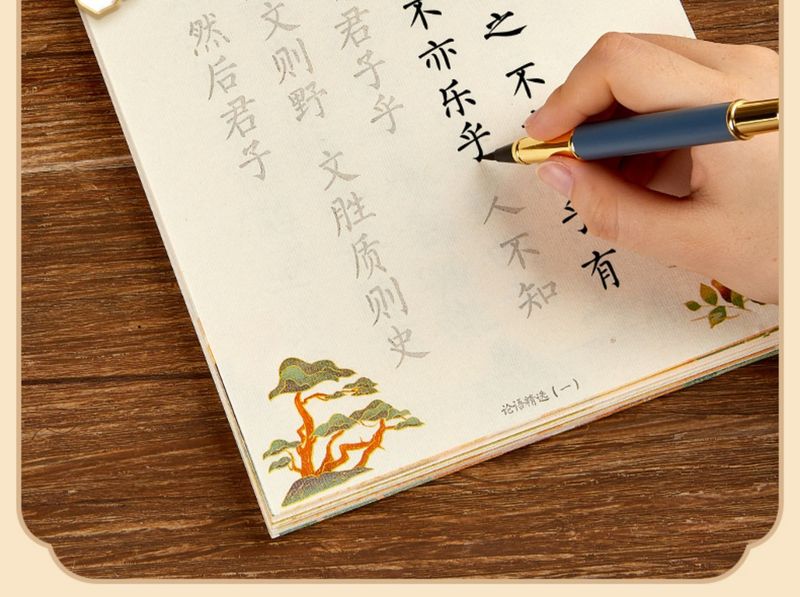 之不乎有
不亦乐乎人不知
君子乎
文则野文胜质则史
然后君子
论语精选(一)